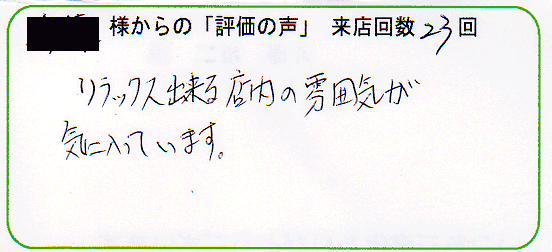 様からの「評価の声」 来店回数23回
リラックス出来る店内の雰囲気が
気に入っています。